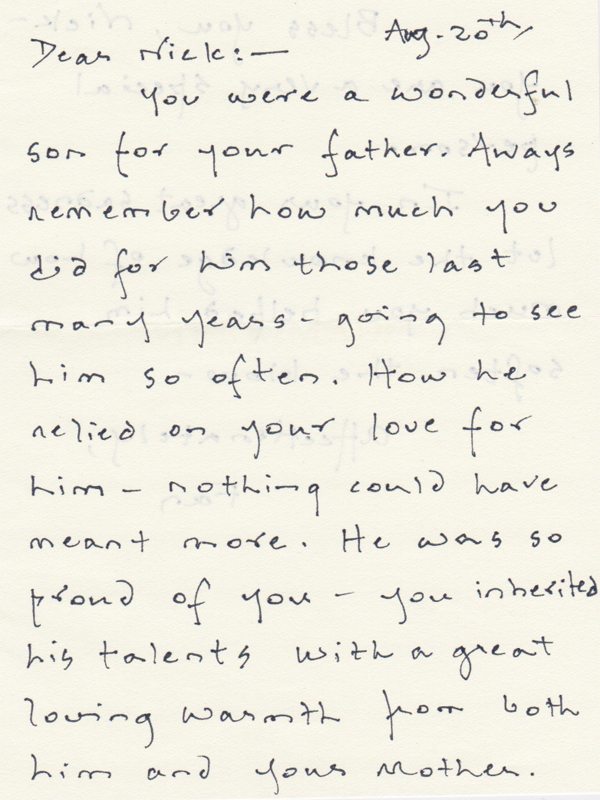 Aug. 20th,
Dear Nick:—
You were a wonderful
son for your father. Aways
remember how much you
did for him those last
many years - going to see
him so often. How he
relied on your love for
him - nothing could have
meant more. He was so
proud of you - you inherited
his talents with a great
loving warmth from both
him and your Mother.